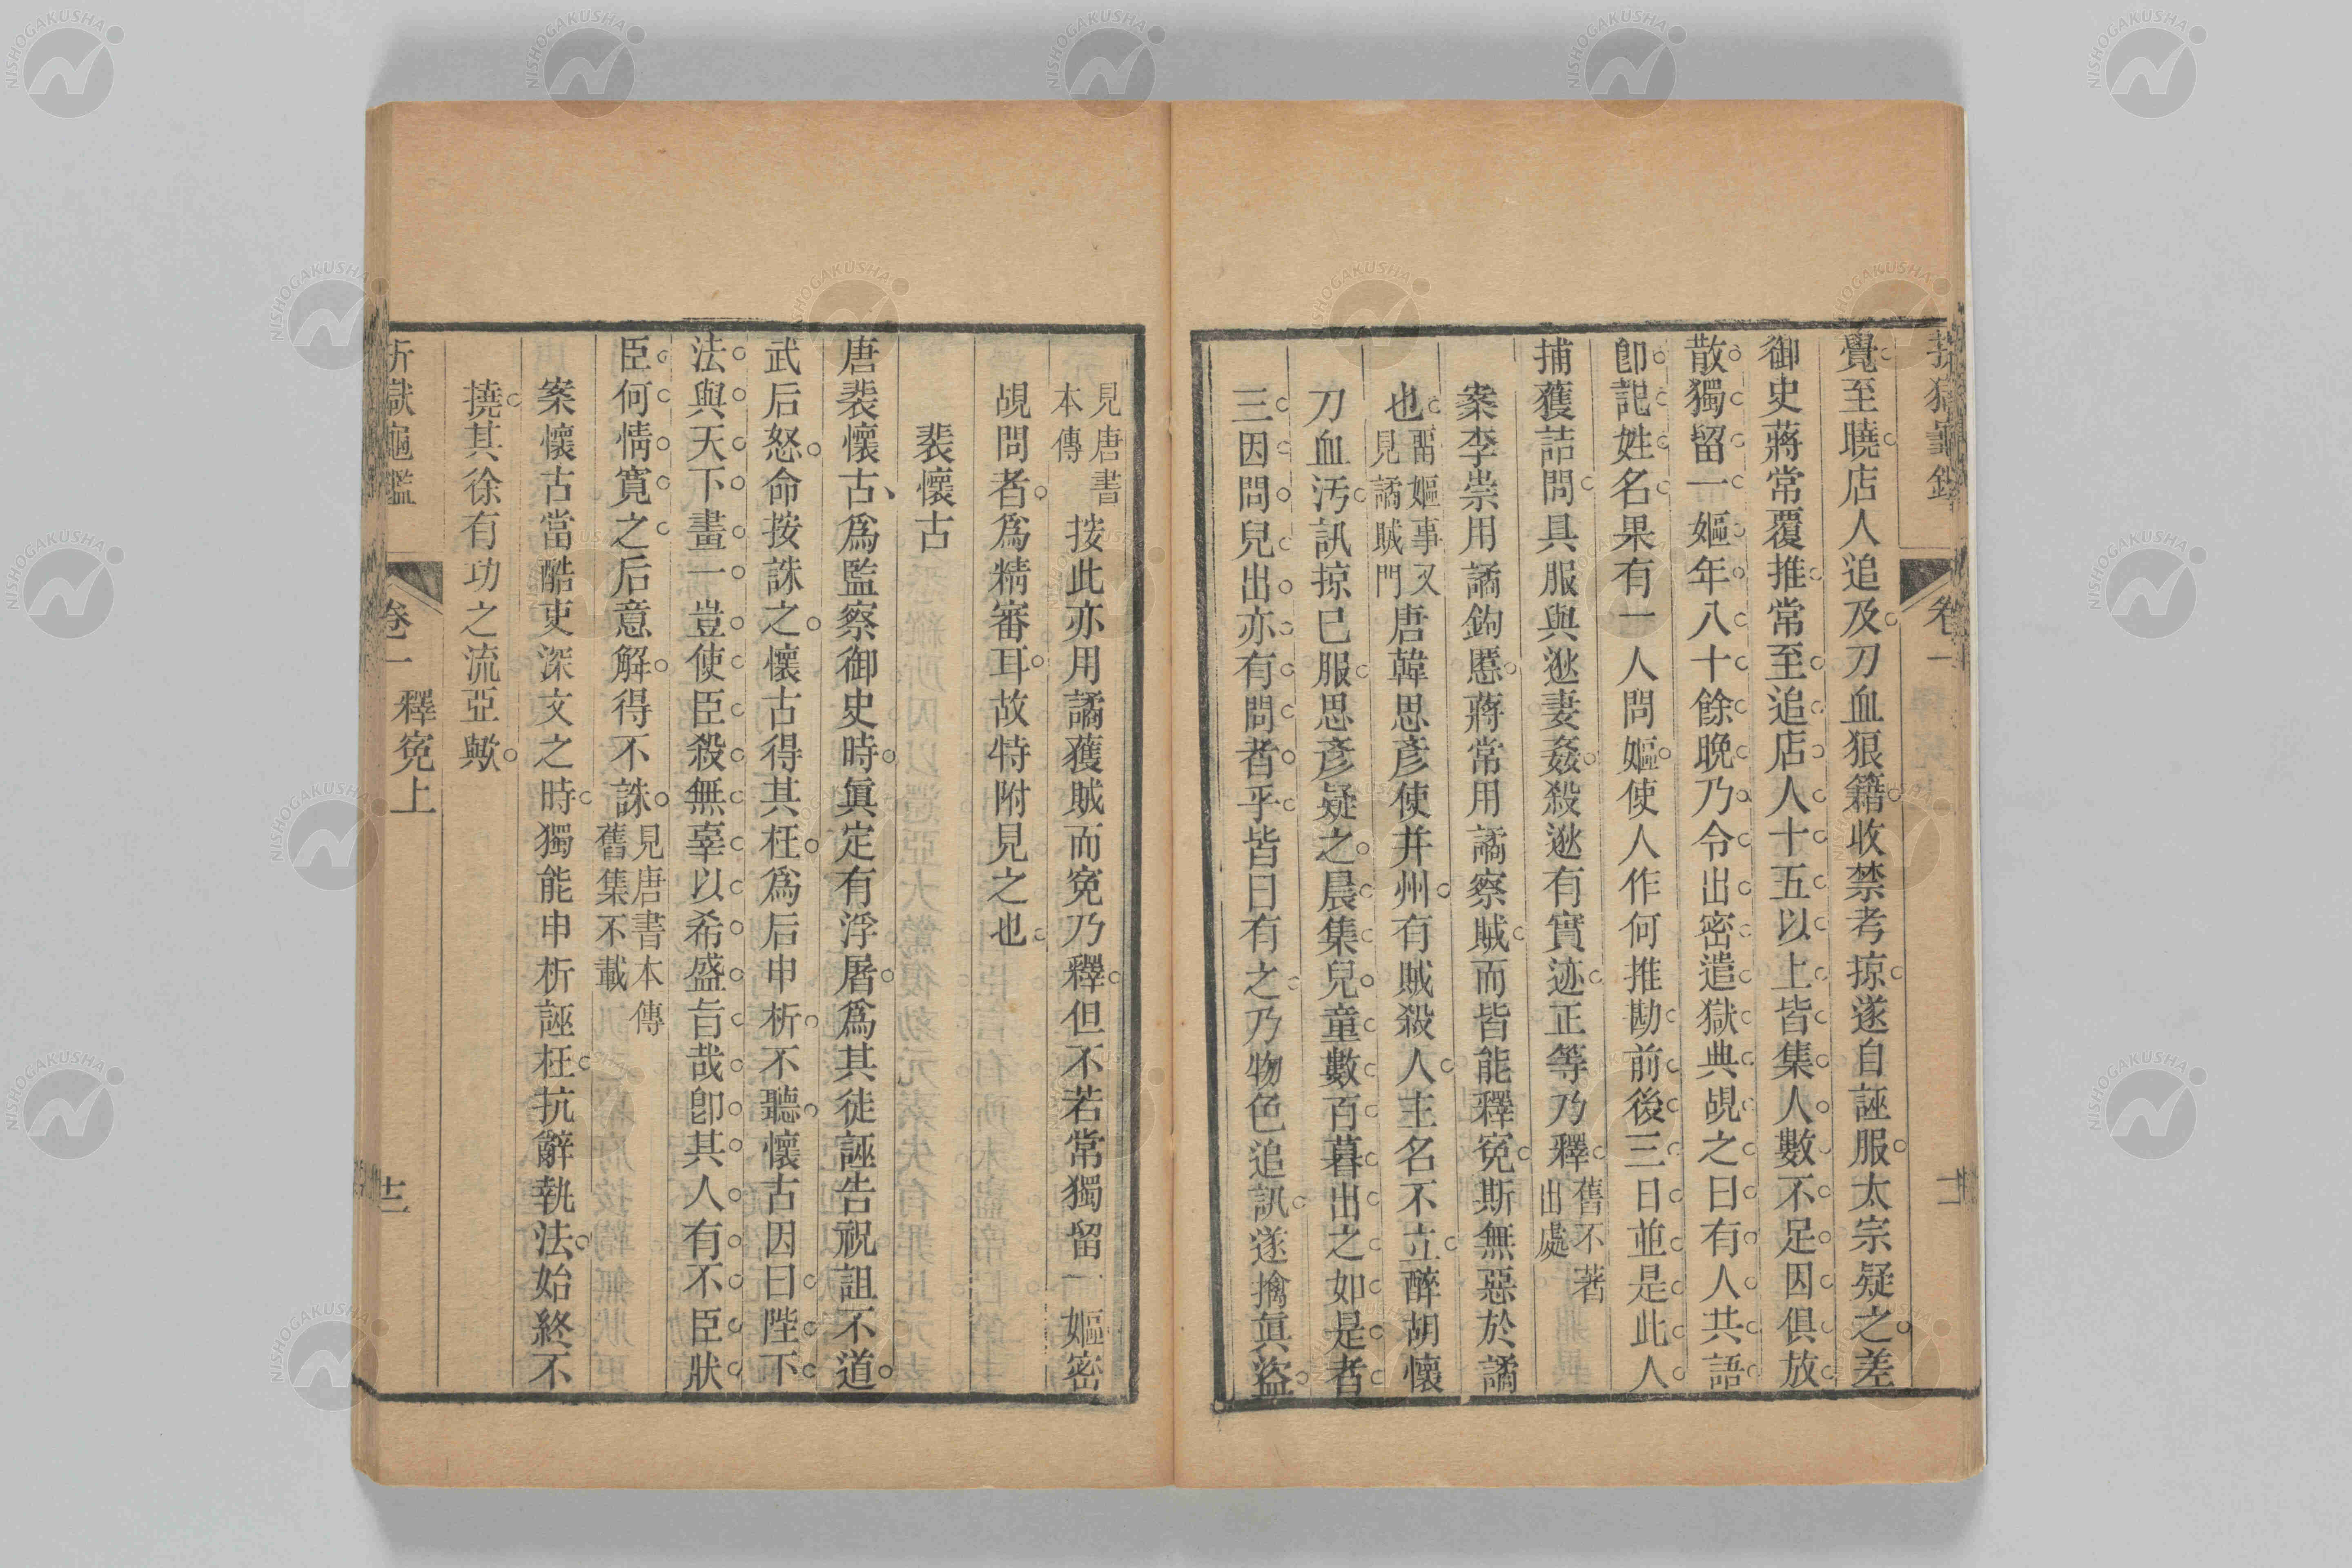 折獄龜鑑 卷一
覺至曉店人追及刀血狠籍收禁考掠遂自誣服太宗疑之差
御史蔣常覆推常至追店人十五以上皆集人數不足因俱放
散獨留一嫗年八十餘晚乃令出密遣獄典覘之曰有人共語
卽記姓名果有一人問嫗使人作何推勘前後三日並是此人
捕獲詰問具服與逖妻姦殺逖有實迹正等乃釋舊不著出處
案李崇用譎鉤慝蔣常用譎察賊而皆能釋寃斯無惡於譎
也畱嫗事又見譎賊門唐韓思彥使并州有賊殺人主名不立醉胡懷
刀血汚訊掠已服思彥疑之晨集兒童數百暮出之如是者
三因問兒出亦有問者乎皆曰有之乃物色追訊遂擒眞盜
見唐書本傳按此亦用譎獲賊而寃乃釋但不若常獨留一嫗密
覘問者爲精審耳故特附見之也
裴懷古
唐裴懷古爲監察御史時眞定有浮屠爲其徒誣告祝詛不道
武后怒命按誅之懷古得其枉爲后申析不聽懷古因曰陛下
法與天下畫一豈使臣殺無辜以希盛旨哉卽其人有不臣狀
臣何情寬之后意解得不誅見唐書本傳舊集不載
案懷古當酷吏深文之時獨能申析誣枉抗辭執法始終不
撓其徐有功之流亞歟
折獄龜鑑 卷一 釋寃上 十二
NISHOGAKUSHA